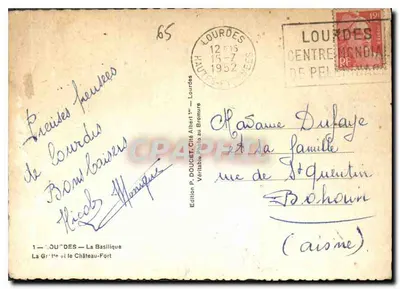 65
LOURDES
12 H 15
15-7
1952
HAUTES PYRENEES
LOURDES
CENTRE MONDIAL
DE PELERINAGE
RF
Pieuses pensées
de Lourdes
Bons baisers
Nicole Monique
Edition P. DOUCET, Cité Albert 1er - Lourdes
Véritable Photo au Bromure
Madame Dufaye
& la famille
rue de St Quentin
Bohain
(aisne)
1 - LOURDES - La Basilique
La Grotte et le Château-Fort